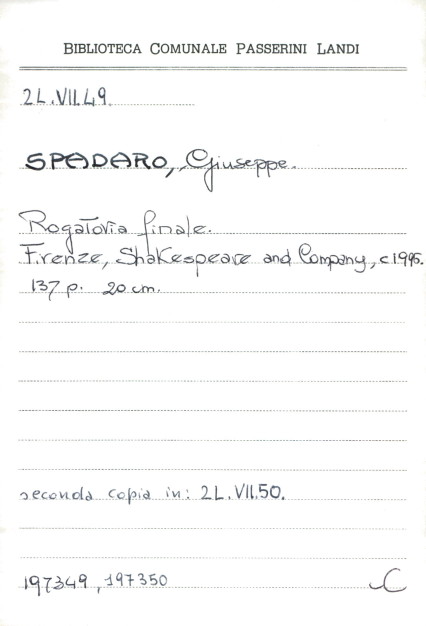 BIBLIOTECA COMUNALE PASSERINI LANDI
2L.VII.49.
SPADARO, Giuseppe.
Rogatoria finale.
Firenze, Shakespeare and Company, c1995.
137 p. 20 cm.
seconda copia in: 2L.VII.50.
197349, 197350
C